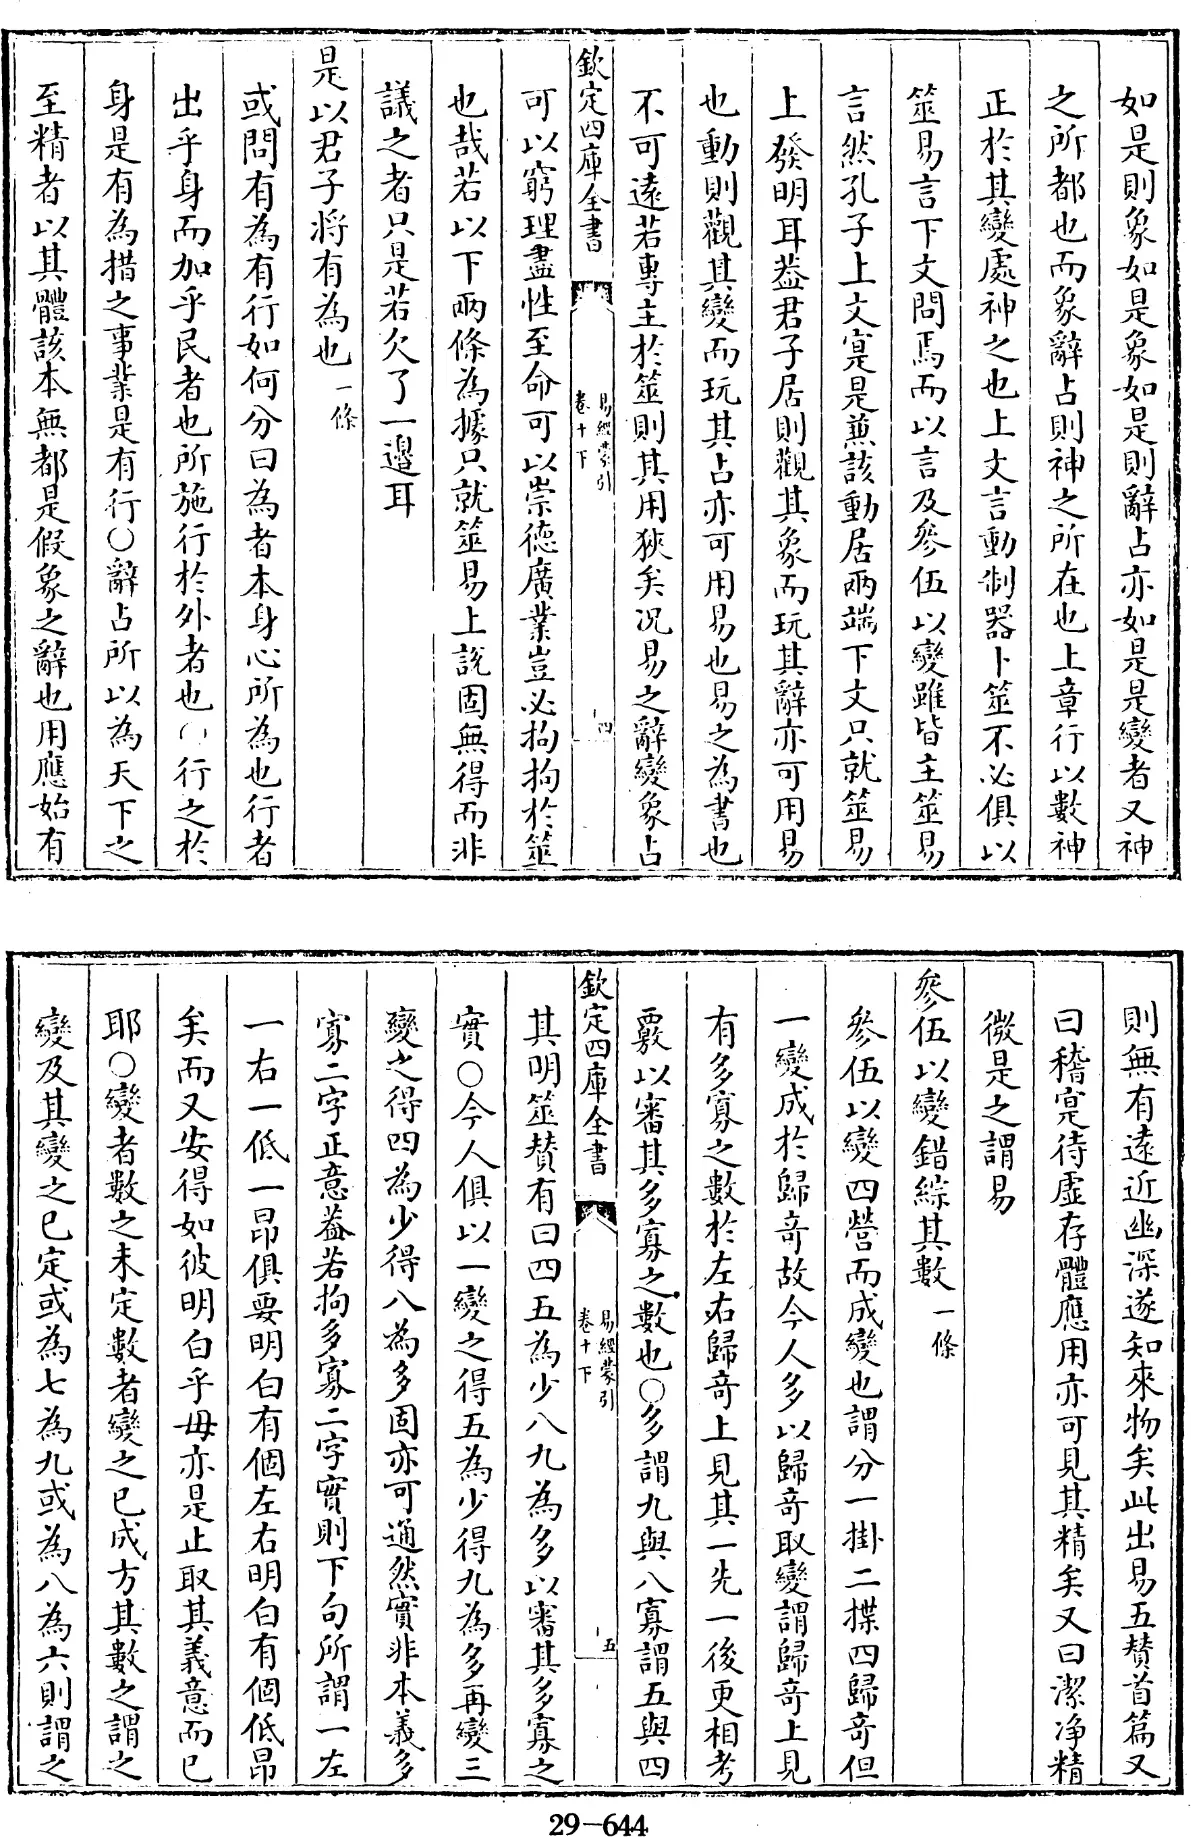 如是則象如是象如是則辭占亦如是是變者又神
之所都也而象辭占則神之所在也上章行以數神
正於其變處神之也上文言動制器卜筮不必俱以
筮易言下文問焉而以言及參伍以變雖皆主筮易
言然孔子上文寔是兼該動居兩端下文只就筮易
上發明耳葢君子居則觀其象而玩其辭亦可用易
也動則觀其變而玩其占亦可用易也易之為書也
不可逺若専主於筮則其用狹矣况易之辭變象占
欽定四庫全書
易經蒙引
卷十下
四
可以窮理盡性至命可以崇徳廣業豈必拘拘於筮
也哉若以下兩條為據只就筮易上說固無得而非
議之者只是若欠了一邉耳
是以君子將有為也一條
或問有為有行如何分曰為者本身心所為也行者
出乎身而加乎民者也所施行於外者也○行之於
身是有為措之事業是有行○辭占所以為天下之
至精者以其體該本無都是假象之辭也用應始有
則無有逺近幽深遂知來物矣此出易五賛首篇又
曰稽寔待虛存體應用亦可見其精矣又曰潔浄精
微是之謂易
參伍以變錯綜其數一條
參伍以變四營而成變也謂分一掛二揲四歸奇但
一變成於歸奇故今人多以歸奇取變謂歸奇上見
有多寡之數於左右歸奇上見其一先一後更相考
覈以審其多寡之數也○多謂九與八寡謂五與四
欽定四庫全書
易經蒙引
卷十下
五
其明筮賛有曰四五為少八九為多以審其多寡之
實○今人俱以一變之得五為少得九為多再變三
變之得四為少得八為多固亦可通然實非本義多
寡二字正意葢若拘多寡二字實則下句所謂一左
一右一低一昂俱要明白有個左右明白有個低昂
矣而又安得如彼明白乎毋亦是止取其義意而已
耶○變者數之未定數者變之已成方其數之謂之
變及其變之已定或為七為九或為八為六則謂之
29-644